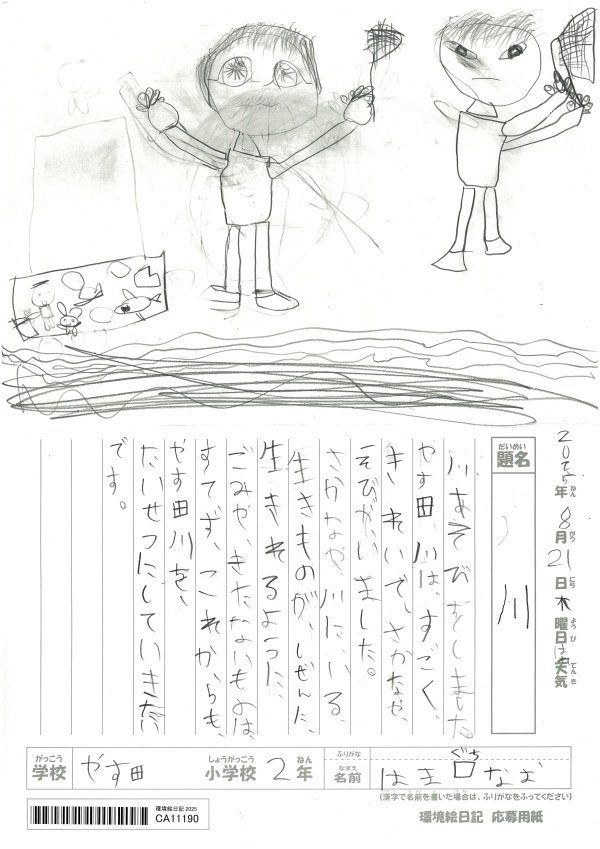 2025年ねん 8月がつ 21日にち 木曜日ようび はれ天気てんき
題名だいめい 川
川あそびをしました。
やす田川は、すごく、
きれいで、さかなや、
えびがいました。
さかなや、川にいる、
生きものが、しぜんに、
生きれるように、
ごみや、きたないものは、
すてず、これからも、
やす田川を、
たいせつにしていきたい
です。
がっこう 学校 やす田 しょうがっこう 小学校 2 ねん 年 ふりがな なまえ 名前 はま口ぐち なお
(漢字で名前を書いた場合は、ふりがなをふってください)
環境絵日記 2025
CA11190
環境絵日記 応募用紙